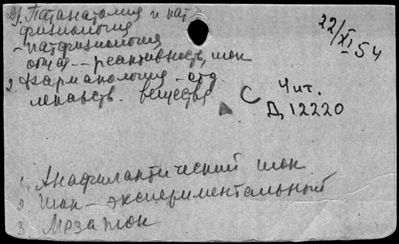 Патанатомия и пат
физиология
- патфизиология
общая -- реактивность, шок
2. Фармакология - отд
лекарств. вещества
22/XI 54
С Чит.
Д 12220
1. Анафилактический шок
2. Шок - экспериментальный
3. Мезатон